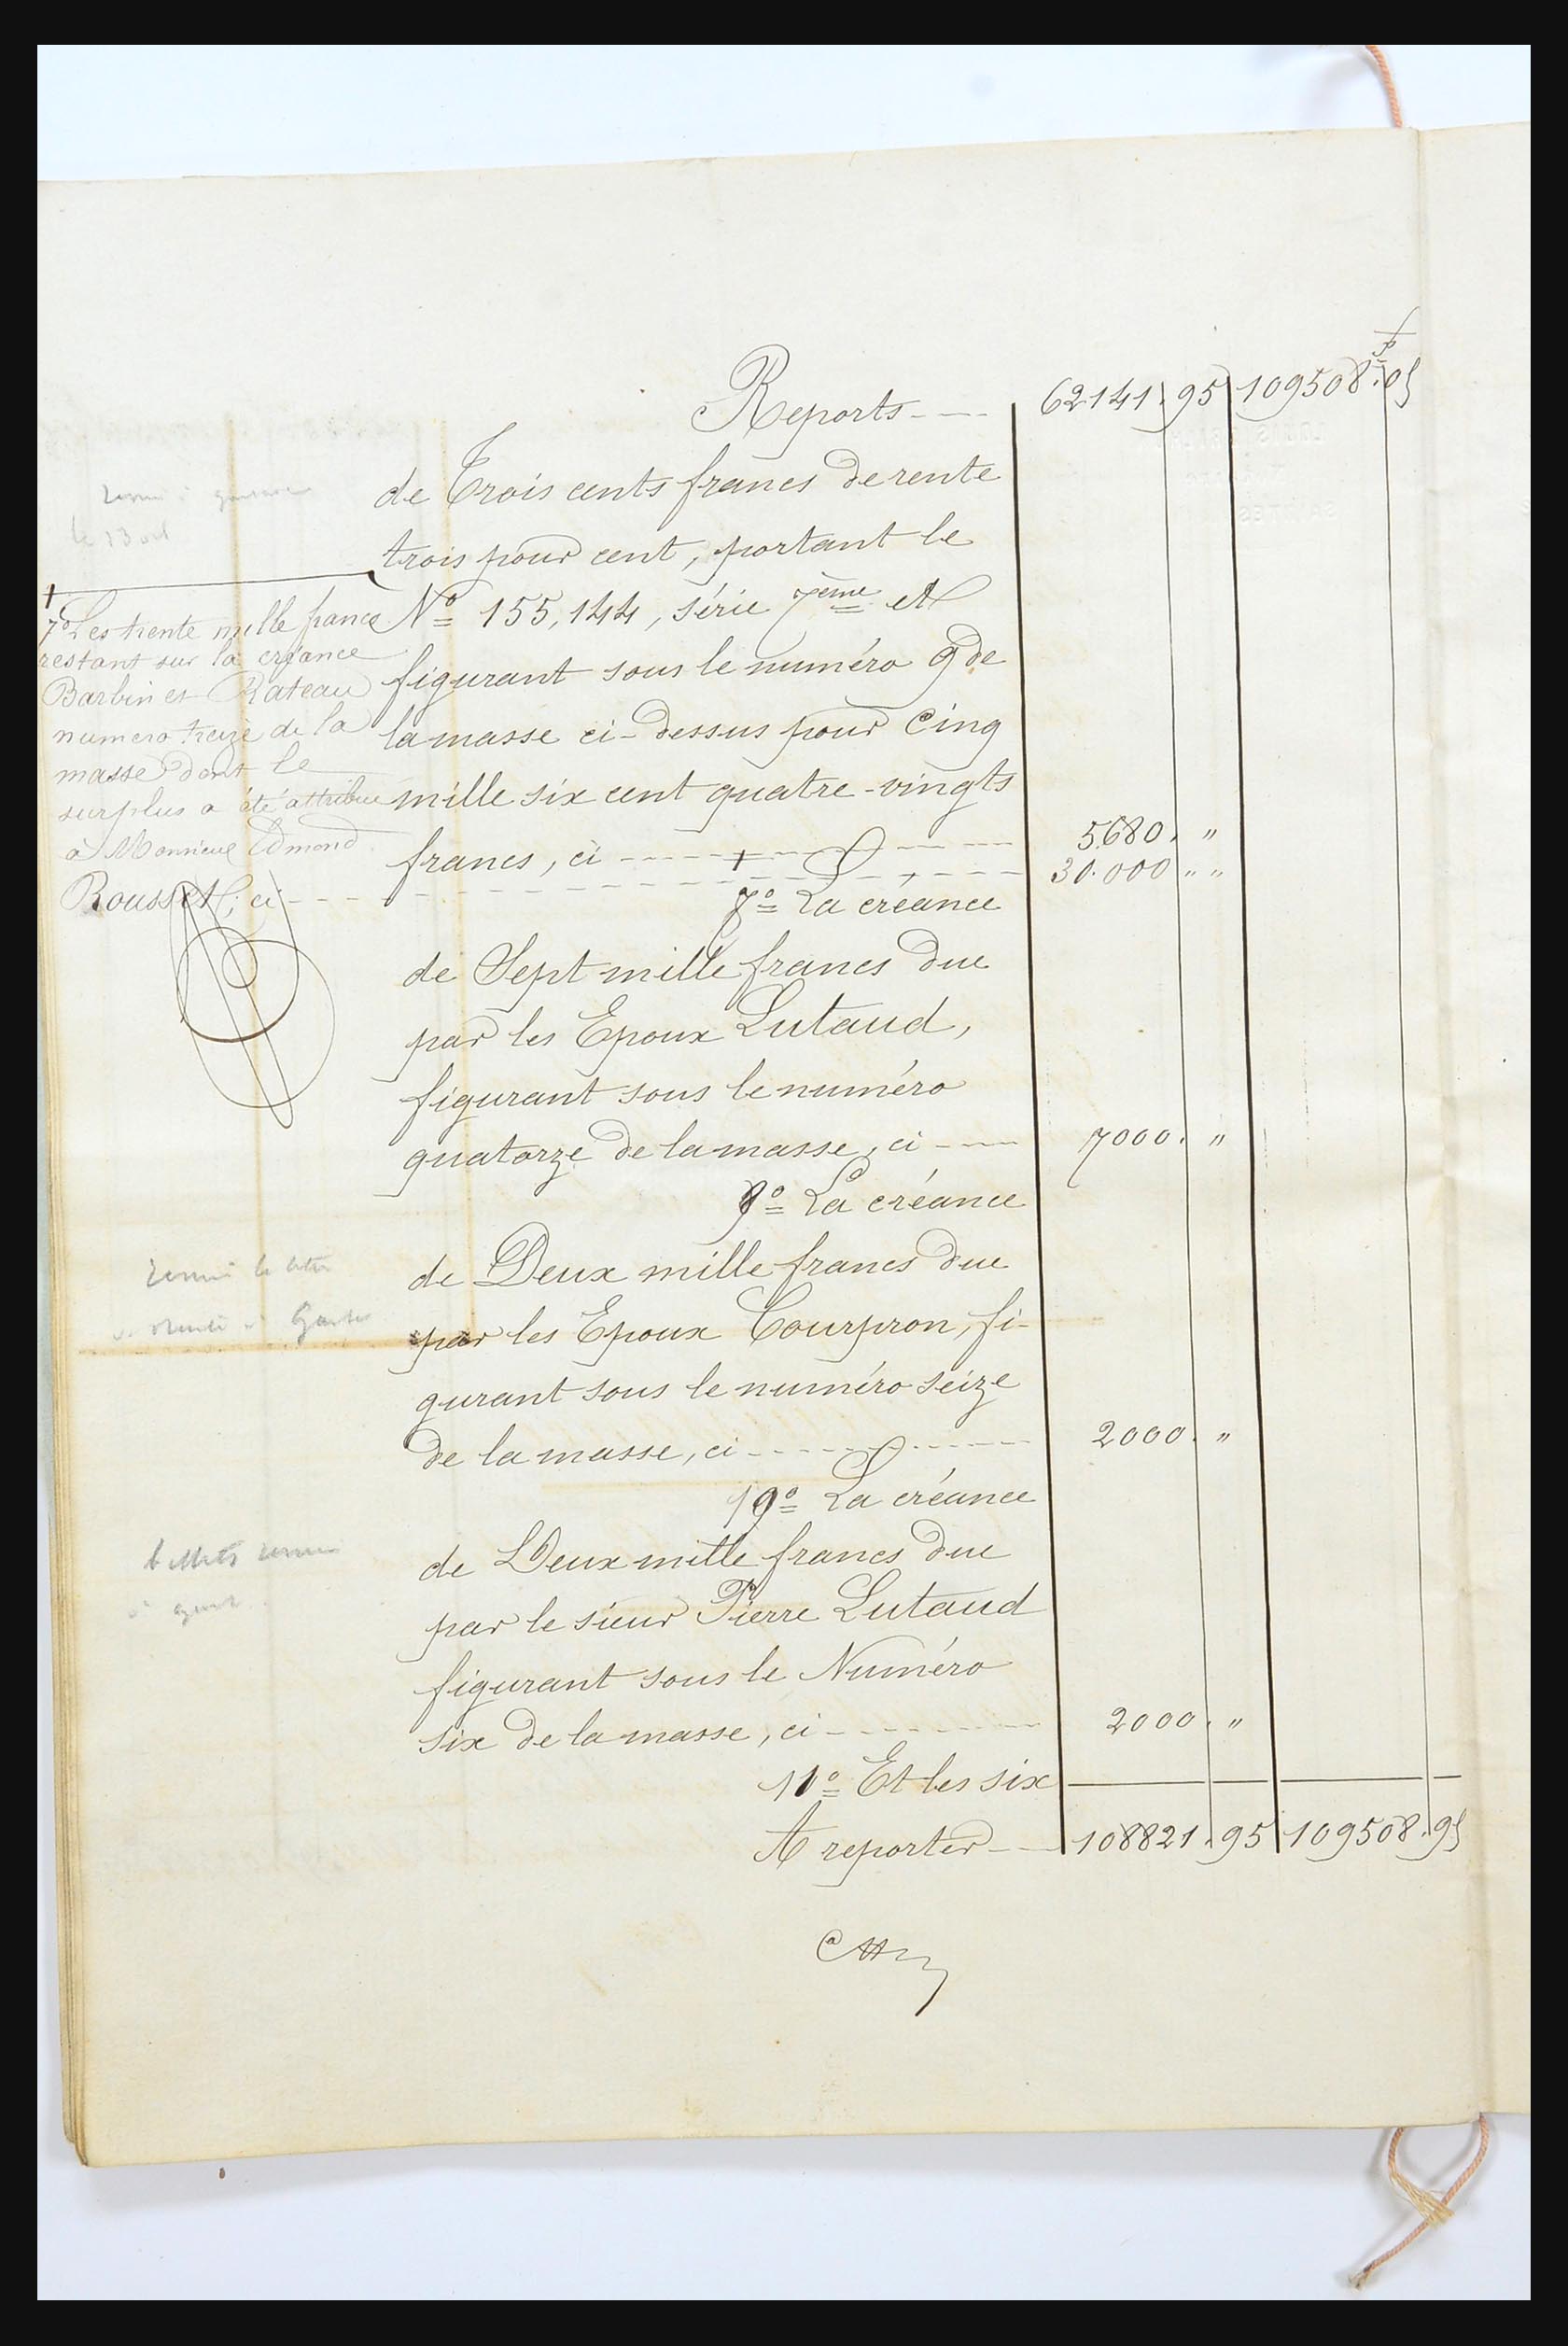 Reports ---- 62141. 95 109508. 95
de Trois cents francs de rente
trois pour cent, portant le
N° 155,144, série 7ème et
figurant sous le numéro 9 de
la masse ci-dessus pour Cinq
mille six cent quatre-vingts
francs, ci ---- 5680. "
30.000 " "
7° Les trente mille francs
restant sur la créance
Barbin et Rateau
numero treize de la
masse dont le
surplus a été attribué
à Monsieur Edmond
Rousset, ci ----
8° La créance
de Sept mille francs due
par les Epoux Lutaud,
figurant sous le numéro
quatorze de la masse, ci ---- 7000. "
9° La créance
de Deux mille francs due
par les Epoux Courpron, fi-
gurant sous le numéro seize
de la masse, ci ---- 2000. "
10° La créance
de Deux mille francs due
par le sieur Pierre Lutaud
figurant sous le Numéro
six de la masse, ci ---- 2000. "
11° Et les six
A reporter ---- 108821. 95 109508. 95